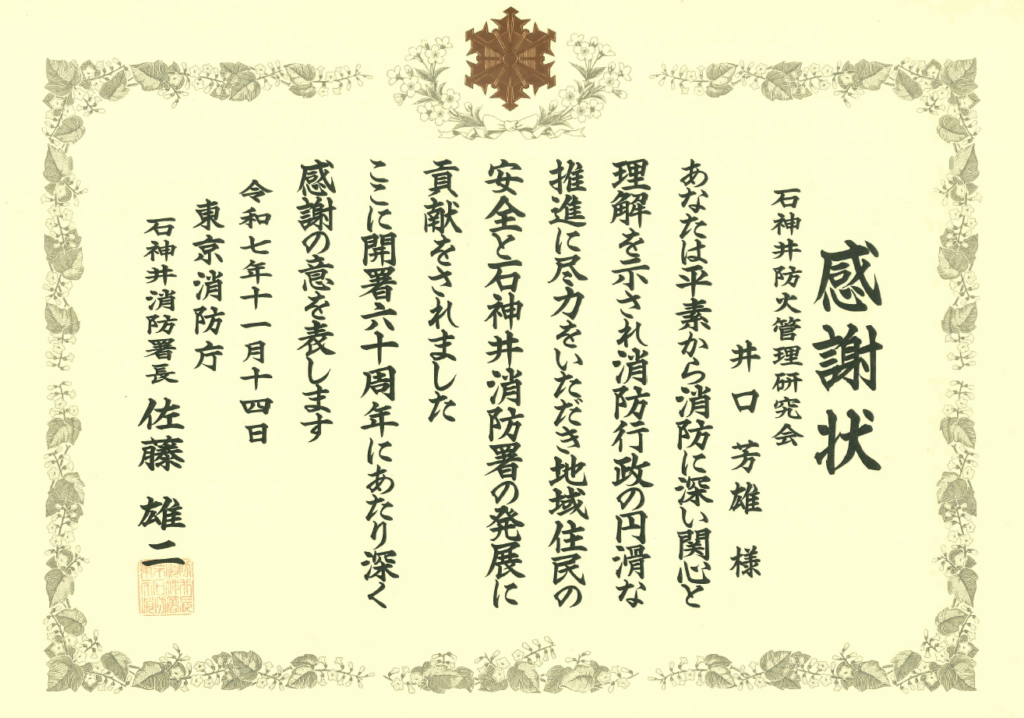 感謝状
石神井防火管理研究会
井口芳雄 様
あなたは平素から消防に深い関心と
理解を示され消防行政の円滑な
推進に尽力をいただき地域住民の
安全と石神井消防署の発展に
貢献をされました
ここに開署六十周年にあたり深く
感謝の意を表します
令和七年十一月十四日
東京消防庁
石神井消防署長 佐藤雄二